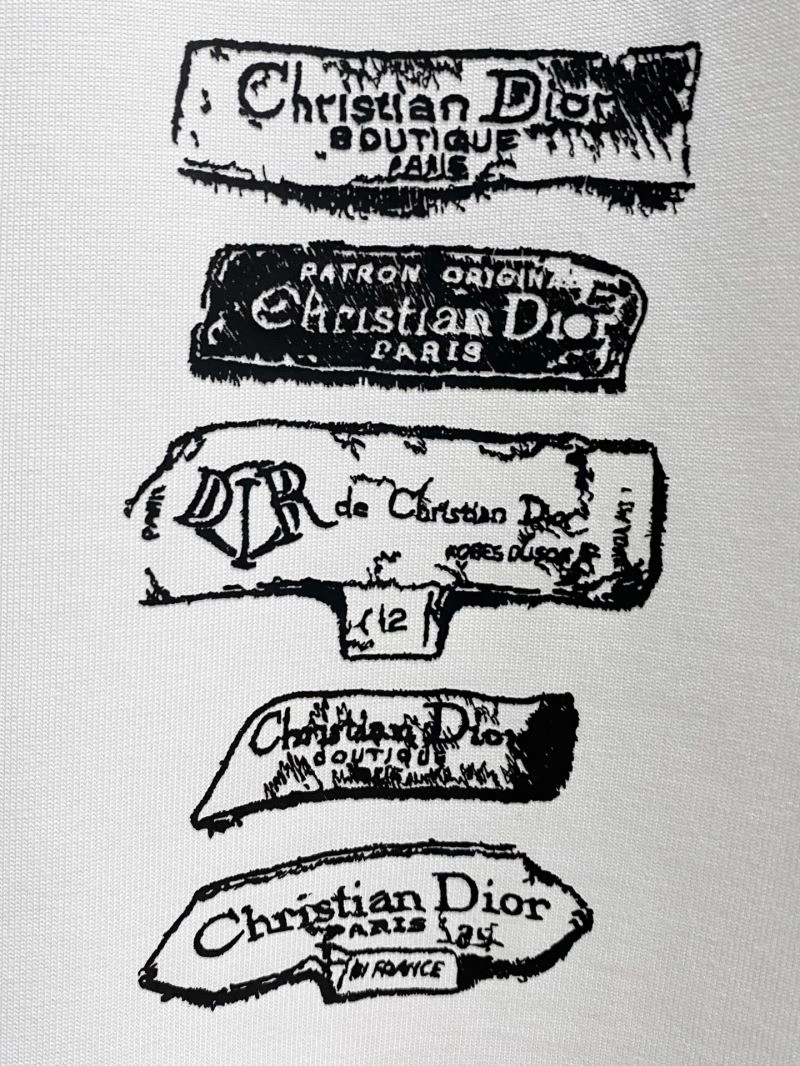 Christian Dior
BOUTIQUE
PARIS
PATRON ORIGINAL
Christian Dior
PARIS
PARIS
DIOR de Christian Dior
ROBES DU SOIR
12
Christian Dior
BOUTIQUE
Christian Dior
PARIS
IN FRANCE